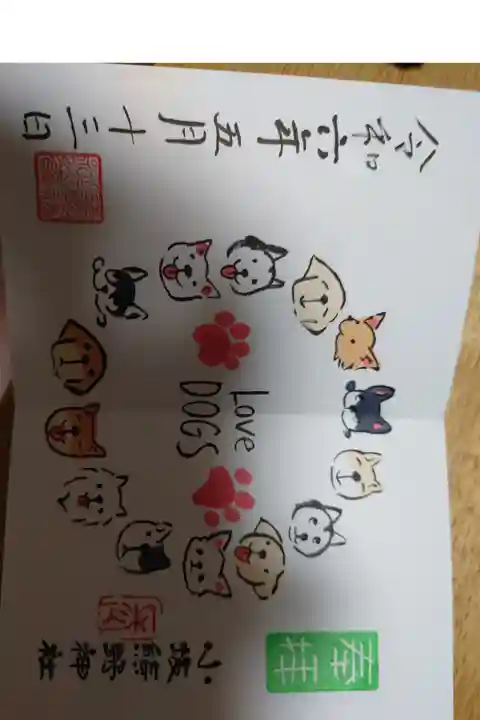 奉拝
Love
DOGS
小坂熊野神社
令和六年五月十三日